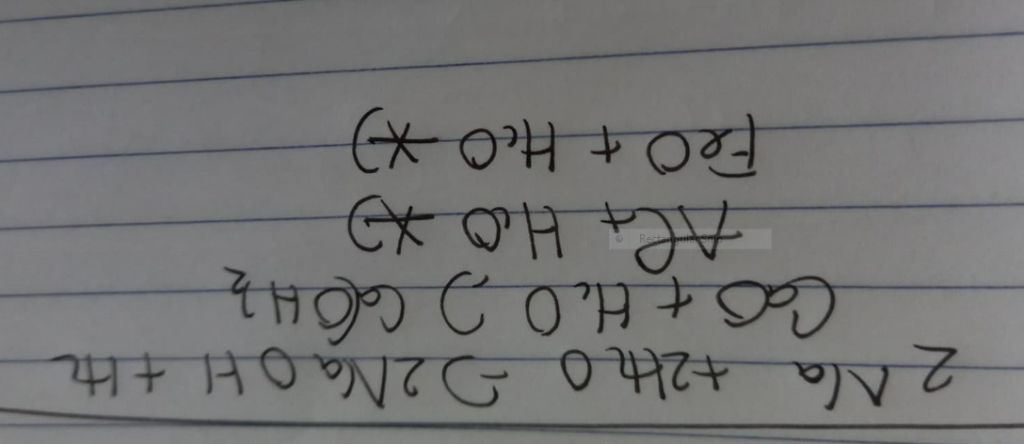 2Na + 2H₂O → 2NaOH + H₂
CaO + H₂O → Ca(OH)₂
Al + H₂O ↛
FeO + H₂O ↛